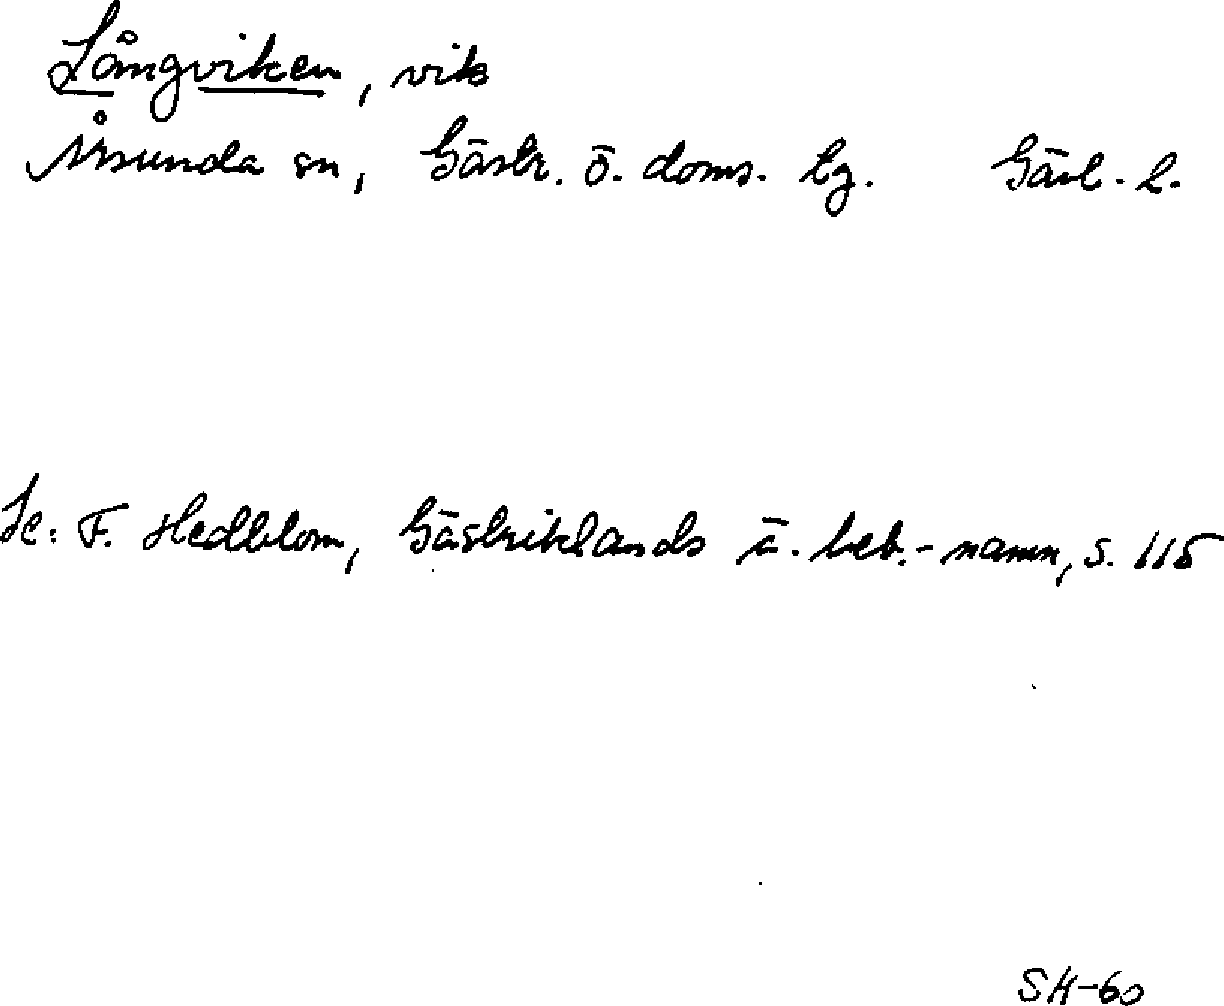 Långviken, vik
Årsunda sn, Gästr. ö. doms. tg. Gävl. l.
Se: F. Hedblom, Gästriklands ä. beb.-namn, s. 115
SK-60